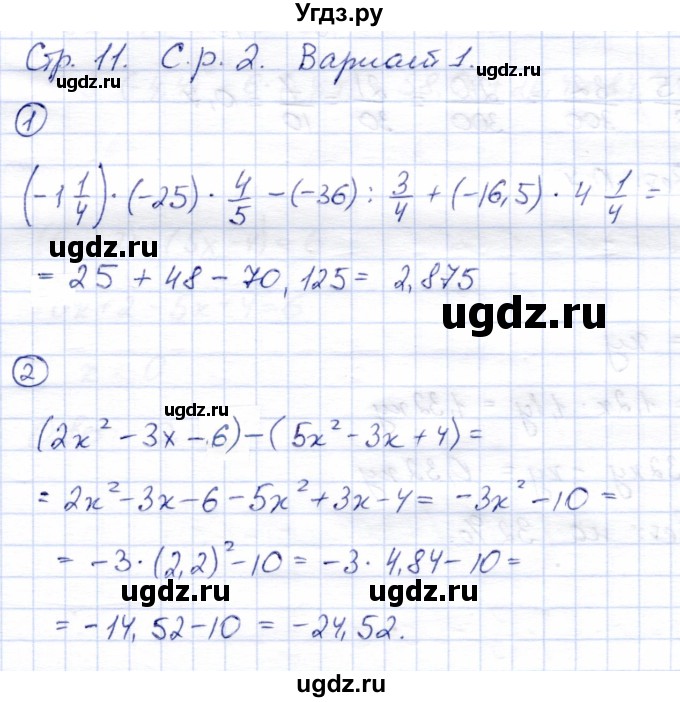 Угдз.ру
Стр. 11. С.р. 2. Вариант 1.
ugdz.ru
ugdz.ru
1
(-1 1/4) · (-25) · 4/5 - (-36) : 3/4 + (-16,5) · 4 1/4 =
ugdz.ru
= 25 + 48 - 70,125 = 2,875
ugdz.ru
2
ugdz.ru
(2x² - 3x - 6) - (5x² - 3x + 4) =
= 2x² - 3x - 6 - 5x² + 3x - 4 = -3x² - 10 =
= -3 · (2,2)² - 10 = -3 · 4,84 - 10 =
ugdz.ru ugdz.ru
= -14,52 - 10 = -24,52.
ugdz.ru